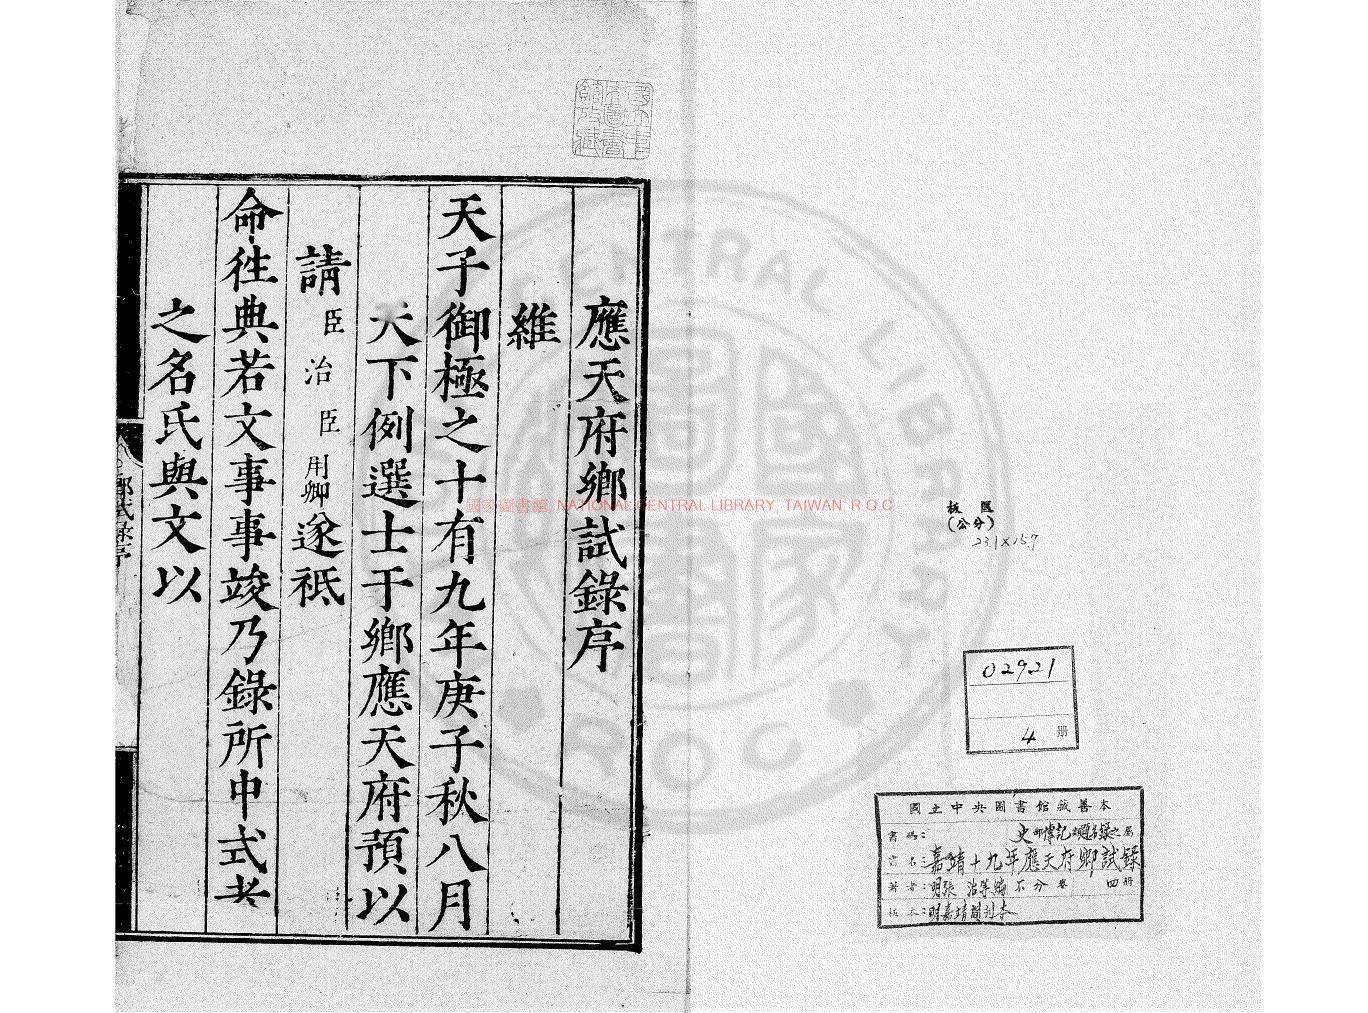 應天府鄉試錄序
維
天子御極之十有九年庚子秋八月
天下例選士于鄉應天府預以
請臣治臣用卿遂祗
命徃典若文事事竣乃錄所中式者
之名氏與文以
鄉試錄序
國立中央圖書館收藏
國家圖書館, NATIONAL CENTRAL LIBRARY, TAIWAN, R.O.C
CENTRAL LIBRARY
R O C
國家圖書
板匡
(公分)
23.1×15.7
02921
4 册
國立中央圖書館藏善本
書碼: 史部傳記類題名錄之屬
書名: 嘉靖十九年應天府鄉試錄
著者: 明張治等編 不分卷 四册
板本: 明嘉靖間刊本